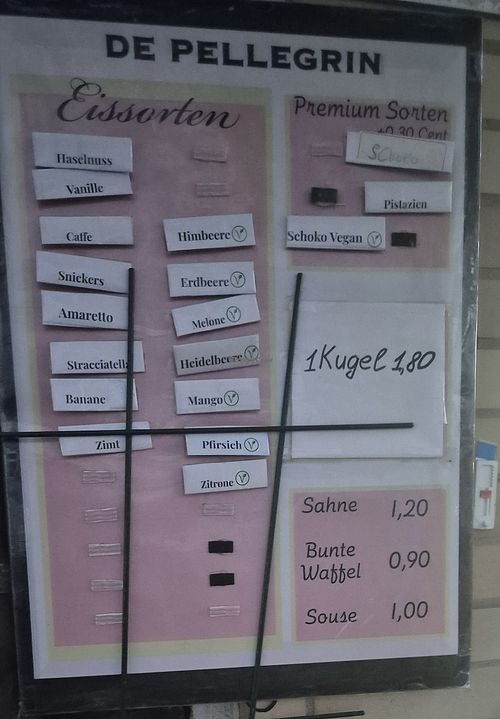 DE PELLEGRIN
Eissorten
Haselnuss
Vanille
Caffe
Snickers
Amaretto
Stracciatell
Banane
Zimt
Himbeere
Erdbeere
Melone
Heidelbeere
Mango
Pfirsich
Zitrone
Premium Sorten
+0,30 Cent
SChoko
Pistazien
Schoko Vegan
1 Kugel 1,80
Sahne 1,20
Bunte
Waffel 0,90
Souse 1,00